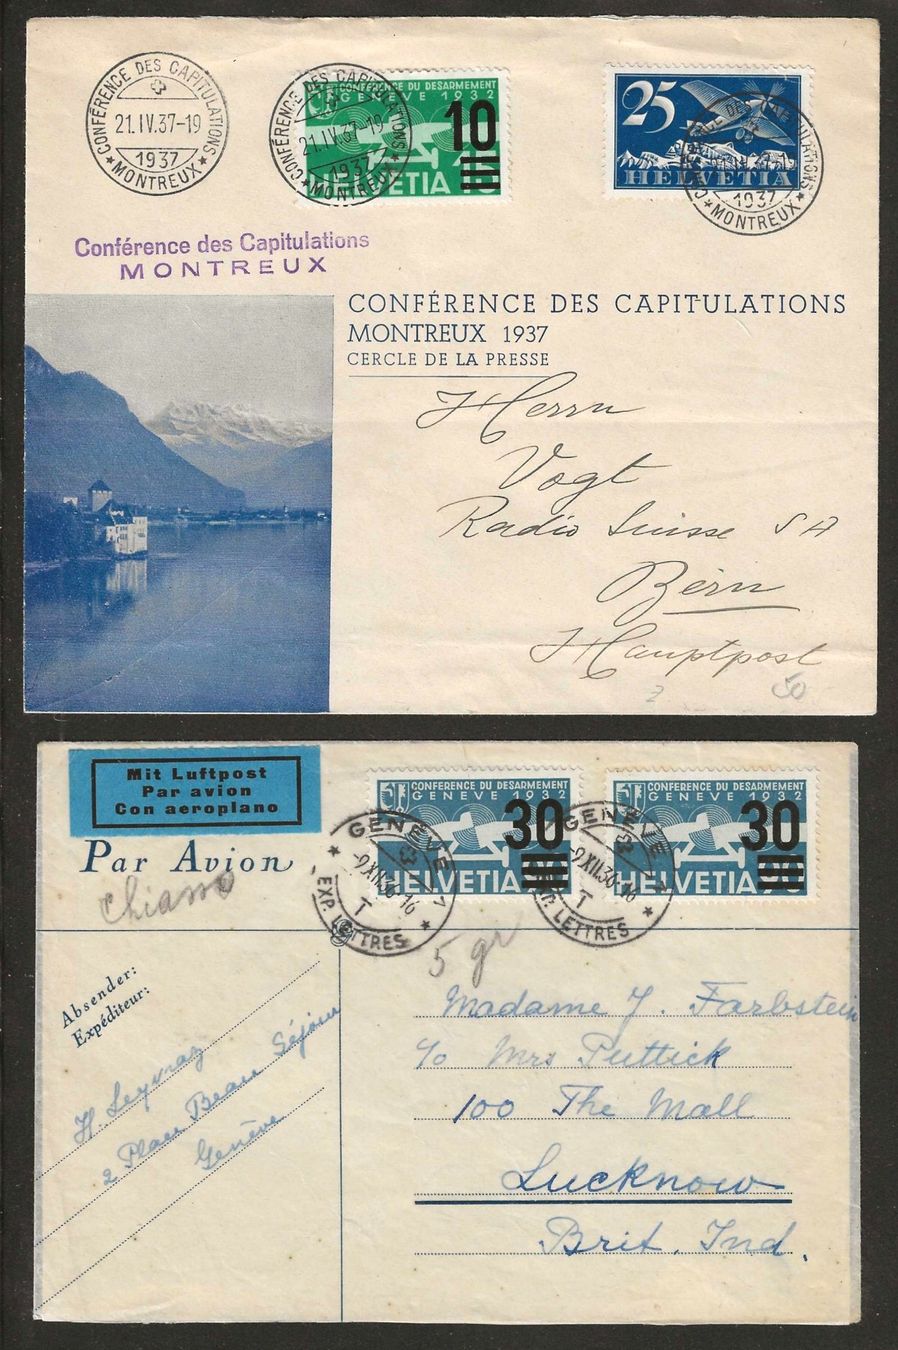 CONFÉRENCE DES CAPITULATIONS
21.IV.37-19
1937
* MONTREUX *
CONFÉRENCE DES CAPITULATIONS
21.IV.37-19
1937
* MONTREUX *
CONFERENCE DU DESARMEMENT
GENEVE 1932
10
HELVETIA 15
25
HELVETIA
1937
* MONTREUX *
Conférence des Capitulations
MONTREUX
CONFÉRENCE DES CAPITULATIONS
MONTREUX 1937
CERCLE DE LA PRESSE
Herrn
Vogt
Radio Suisse S A
Bern
Hauptpost
50
Mit Luftpost
Par avion
Con aeroplano
Par Avion
Chiasso
CONFERENCE DU DESARMEMENT
GENEVE 1932
30
HELVETIA 90
GENÈVE
EXP. LETTRES
CONFERENCE DU DESARMEMENT
GENEVE 1932
30
HELVETIA 90
GENÈVE
EXP. LETTRES
5 gr
Absender:
Expéditeur:
H. Leyvraz
2 Place Beau Séjour
Genève
Madame J. Farbstein
c/o Mrs Puttick
100 The Mall
Lucknow
Brit. Ind.